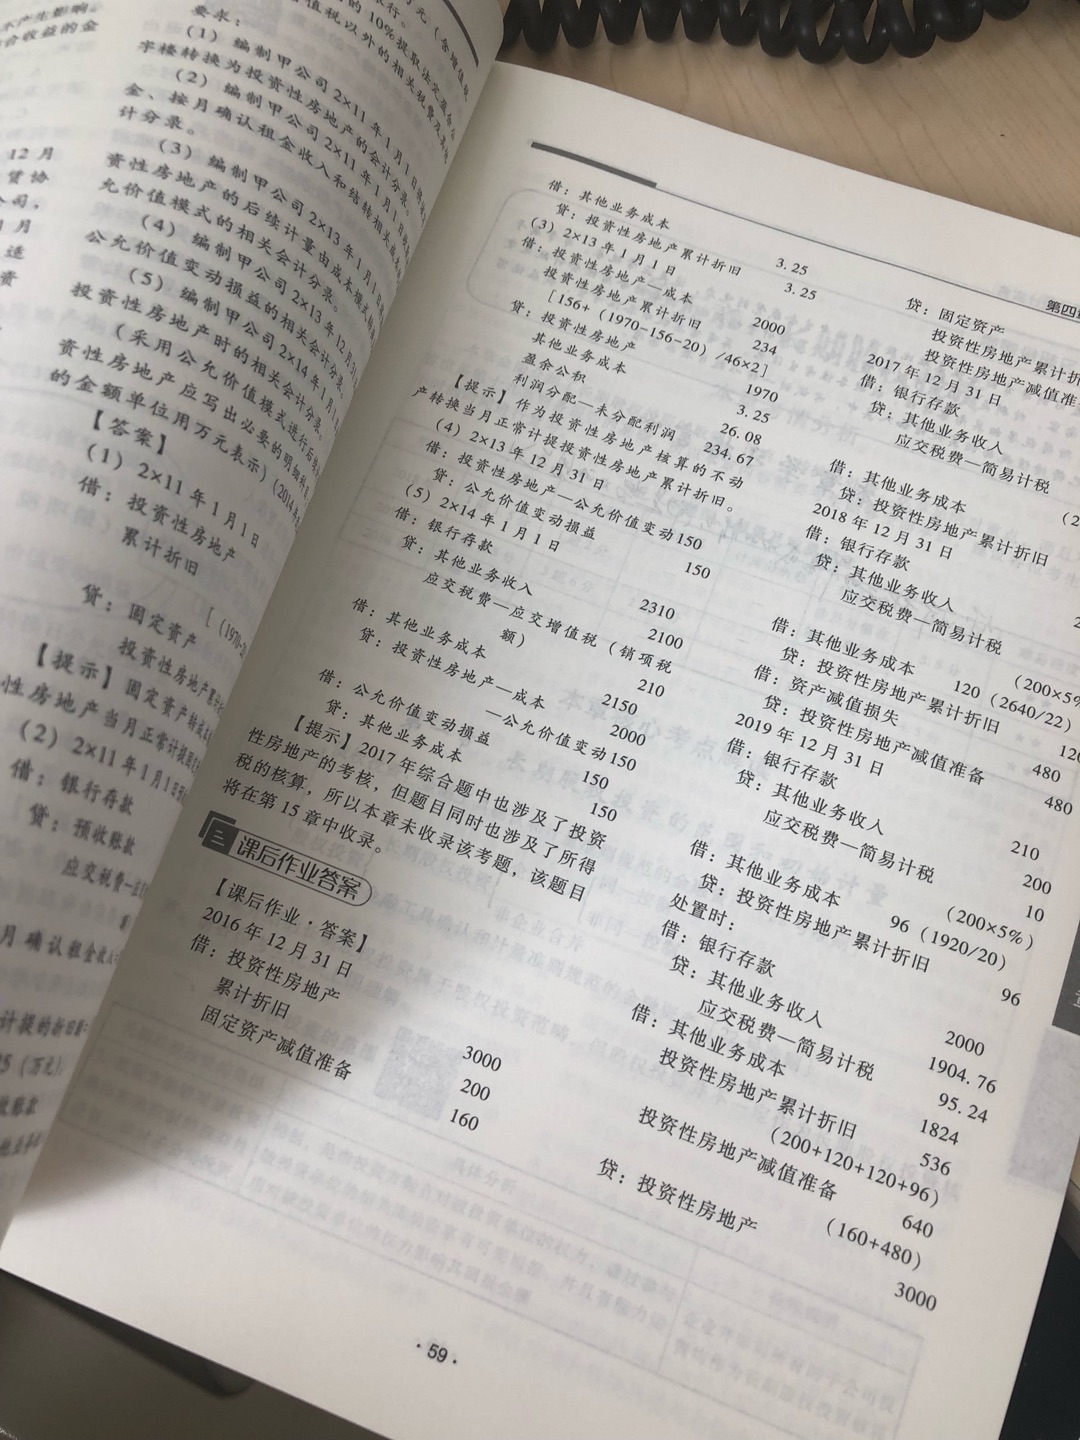 不产生影响。
合收益的金
12月
贷协
司，
1月
适
资
要求：
（1）编制甲公司2×11年1月1日
字楼转换为投资性房地产的会计分录。
（2）编制甲公司2×11年1月1日
金、按月确认租金收入和结转相关
计分录。
（3）编制甲公司2×13年1月1日
资性房地产的后续计量由成本模式
允价值模式的相关会计分录。
（4）编制甲公司2×13年12月31
公允价值变动损益的相关会计分录。
（5）编制甲公司2×14年1月1
投资性房地产时的相关会计分录。
（采用公允价值模式进行后
资性房地产应写出必要的明细科
的金额单位用万元表示）（2014
【答案】
（1）2×11年1月1日
借：投资性房地产
累计折旧
[（1970-2
贷：固定资产
投资性房地产累
【提示】固定资产转
性房地产当月正常计提
（2）2×11年1月1日
借：银行存款
贷：预收账款
应交税费—
月确认租金收
计提的折旧
（万元）
借：其他业务成本 3.25
贷：投资性房地产累计折旧 3.25
（3）2×13年1月1日
借：投资性房地产—成本 2000
投资性房地产累计折旧 234
[156+（1970-156-20）/46×2]
贷：投资性房地产 1970
其他业务成本 3.25
盈余公积 26.08
利润分配—未分配利润 234.67
【提示】作为投资性房地产核算的不动
产转换当月正常计提投资性房地产累计折旧。
（4）2×13年12月31日
借：投资性房地产—公允价值变动150
贷：公允价值变动损益 150
（5）2×14年1月1日
借：银行存款 2310
贷：其他业务收入 2100
应交税费—应交增值税（销项税
额） 210
借：其他业务成本 2150
贷：投资性房地产—成本 2000
—公允价值变动150
借：公允价值变动损益 150
贷：其他业务成本 150
【提示】2017年综合题中也涉及了投资
性房地产的考核，但题目同时也涉及了所得
税的核算，所以本章未收录该考题，该题目
将在第15章中收录。
三 课后作业答案
【课后作业·答案】
2016年12月31日
借：投资性房地产 3000
累计折旧 200
固定资产减值准备 160
第四
贷：固定资产
投资性房地产累计折
投资性房地产减值准
2017年12月31日
借：银行存款
贷：其他业务收入
应交税费—简易计税
借：其他业务成本
贷：投资性房地产累计折旧
2018年12月31日
借：银行存款
贷：其他业务收入
应交税费—简易计税
（200×5%
借：其他业务成本 120（2640/22）
贷：投资性房地产累计折旧 120
借：资产减值损失 480
贷：投资性房地产减值准备 480
2019年12月31日
借：银行存款 210
贷：其他业务收入 200
应交税费—简易计税 10
（200×5%）
借：其他业务成本 96（1920/20）
贷：投资性房地产累计折旧 96
处置时：
借：银行存款 2000
贷：其他业务收入 1904.76
应交税费—简易计税 95.24
借：其他业务成本 1824
投资性房地产累计折旧 536
（200+120+120+96）
投资性房地产减值准备 640
（160+480）
贷：投资性房地产 3000
·59·